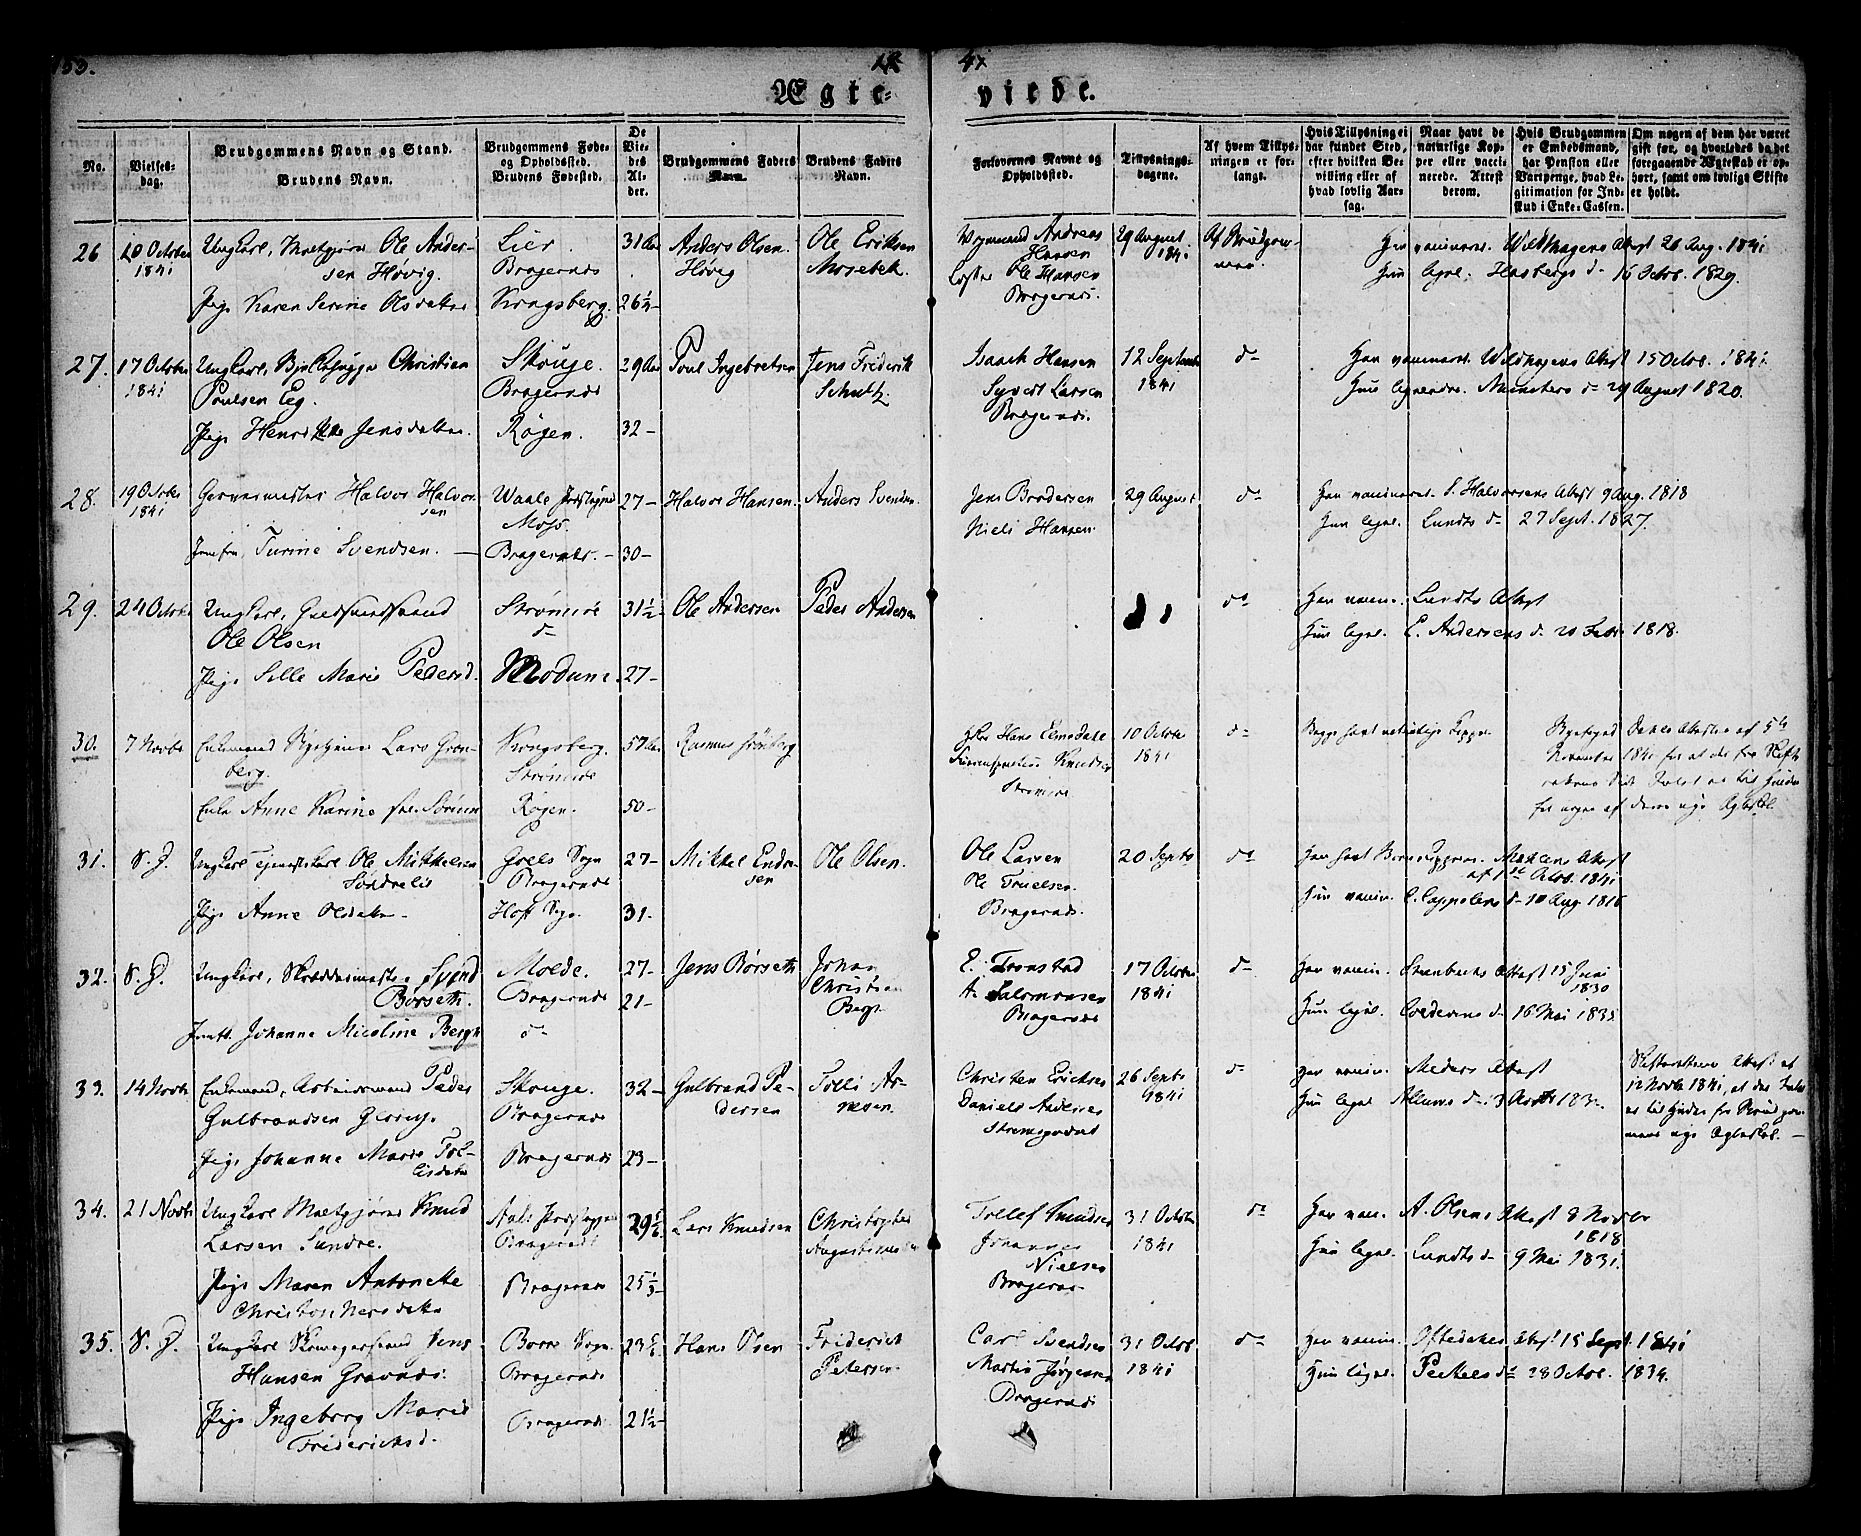 153.
18
41
Ægte-
viede.
No.
Vielses-
dag.
Brudgommens Navn og Stand.
Brudens Navn.
Brudgommens Føde-
og Opholdssted.
Brudens Fødested.
De
Vie-
des
Al-
der.
Brudgommens Faders
Navn.
Brudens Faders
Navn.
Forlovernes Navne og
Opholdssted.
Tillysnings-
dagene.
Af hvem Tillys-
ningen er for-
langt.
Hvis Tillysning ei
har fundet Sted,
efter hvilken Be-
villing eller af
hvad lovlig Aar-
sag.
Naar havt de
naturlige Kop-
per eller vacci-
nerede. Attest
derom.
Hvis Brudgommen
er Embedsmand,
har Pension eller
Vartpenge, hvad Le-
gitimation for Ind-
skud i Enke-Cassen.
Om nogen af dem har været
gift før, og hvorledes da det
foregaaende Ægteskab er op-
hørt, samt om lovligt Skifte
er holdt.
26
10 October
1841
Ungkarl, Ole Ander-
sen Høvig.
Pige Karen Serine Olsdatter
Lier.
Bragernæs
Kongsberg.
31 Aar
26½
Anders Olsen
Høvig
Ole Eriksen
Mosebek.
Andreas
Hansen
Ole Hansen
Bragernæs.
29 August
1841
Af Brudgom-
men.
Han vaccineret. Wildhagens Attest 26 Aug. 1841
Hun ligel. Hasbergs d. 16 Octob. 1829.
27.
17 October
1841
Ungkarl, Christian
Poulsen Eg.
Pige Jensdatter.
Skouge.
Bragernæs
Røgen.
29 Aar
32
Poul Ingebretsen
Jens Friderik
Schultz.
Isaack Hansen
Syvert Larsen
Bragernæs.
12 September
1841
do
Han vaccineret. Wildhagens Attest 15 Octob. 1841.
Hun ligeledes. Münsters do 29 August 1820.
28.
19 October
1841
Garvermester Halvor Halvor-
sen
Jomfru Turine Svendsen.
Waale Præstegjeld
Moss.
Bragernæs.
27
30
Halvor Hansen.
Anders Svendsen.
Jens Brodersen
Niels Hansen
29 August
do
Han vaccineret. S. Halvorsens Attest 9 Aug. 1818
Hun ligel. Lundts do 27 Sept. 1827.
29.
24 October
Ungkarl,
Ole Olsen
Pige Sille Marie Pedersd.
Strømsøe
do
Modum.
31½
27
Ole Andersen
Peder Andersen
do
Han vaccin. Lundts Attest
Hun ligel. E. Andersens d. 20 1818.
30.
7 Novbr
Enkemand Lars Grøn-
berg.
Enke Anne Karine
Kongsberg.
Strømsøe
Røgen.
57 Aar
50
Rasmus Grønberg
Hans
Knudsen
Strømsøe
10 October
1841
do
Begge havt naturlige Kopper.
Attester af 5te
November 1841 for at der fra Skifte-
for deres nye Ægteskab.
31.
S. D.
Ungkarl Tjenestekarl Ole Mikkelsen
Søndrelie
Pige Anne Olsdatter
Goels Sogn
Bragernæs
Hoff Sogn.
27
31
Mikkel Endre-
sen
Ole Olsen.
Ole Larsen
Ole Truelsen
Bragernæs.
20 Septbr
do
Han havt Attest
af 1ste Octob. 1841
Hun vaccin. C. Cappelens do 10 Aug 1816
32.
S. D.
Ungkarl, Skræddermester
Børseth.
Jomfr. Johanne Nicoline Bergh
Molde.
Bragernæs
do
27
21
Jens Børseth
Johan
Christian
Bergh
E. Tronstad
A. Salomonsen
Bragernæs
17 October
1841
do
Han vaccin. Attest 15 Juni
1830
Hun ligel. d. 16 Mai 1835
33.
14 Novbr
Enkemand, Arbeidsmand Peder
Gulbrandsen
Pige Johanne Marie Tol-
lisdatter
Skouge.
Bragernæs
Bragernæs
32
23
Gulbrand Pe-
dersen
Tolli Ar-
nesen.
Christen Ericksen
Daniel Andersen
Strømsgodset
26 Septbr
1841
do
Han vaccin. Meders Attest
Hun ligel. Allums d.
Skifterettens Attest af
12 Novbr 1841, at der Intet
er til Hinder for Brudgom-
mens nye Ægteskab.
34.
21 Novbr
Ungkarl Knud
Larsen Sundre.
Pige Maren Antonette
Christophersdatter
Aals Præstegjeld
Bragernæs
Bragernæs
29
25⅓
Lars Knudsen
Christopher
Tollef Knudsen
Johannes
Nielsen
Bragernæs
31 October
1841
do
Han vac. A. Olsens Attest 8 Novbr
1818
Hun ligel. Lundts do 9 Mai 1831.
35.
S. D.
Ungkarl Skomagersvend Jens
Hansen Gravnæs.
Pige Ingeborg Marie
Friderichsd.
Borre Sogn.
Bragernæs
Bragernæs
23
21½
Hans Olsen
Friderich
Petersen
Carl Svendsen
Martin Jørgensen
Bragernæs
31 Octob.
1841
do
Han vaccin. Oftedahls Attest 15 Sept. 1841
Hun ligel. do 28 Octob. 1834.